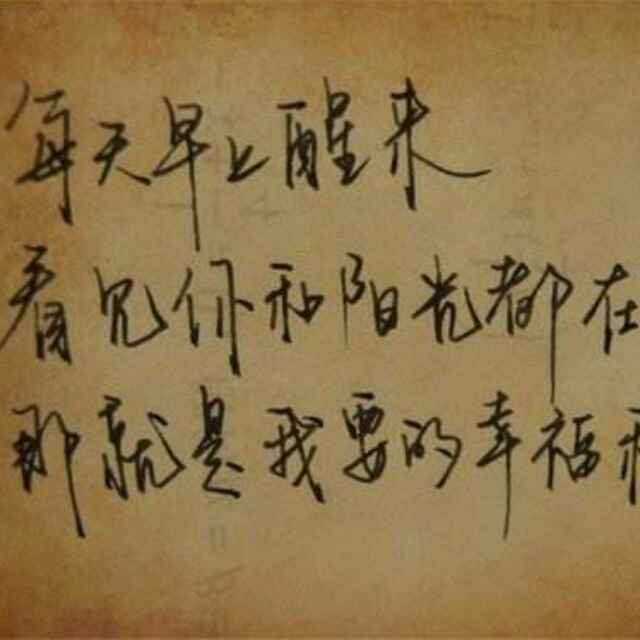 每天早上醒来
看见你和阳光都在
那就是我要的幸福